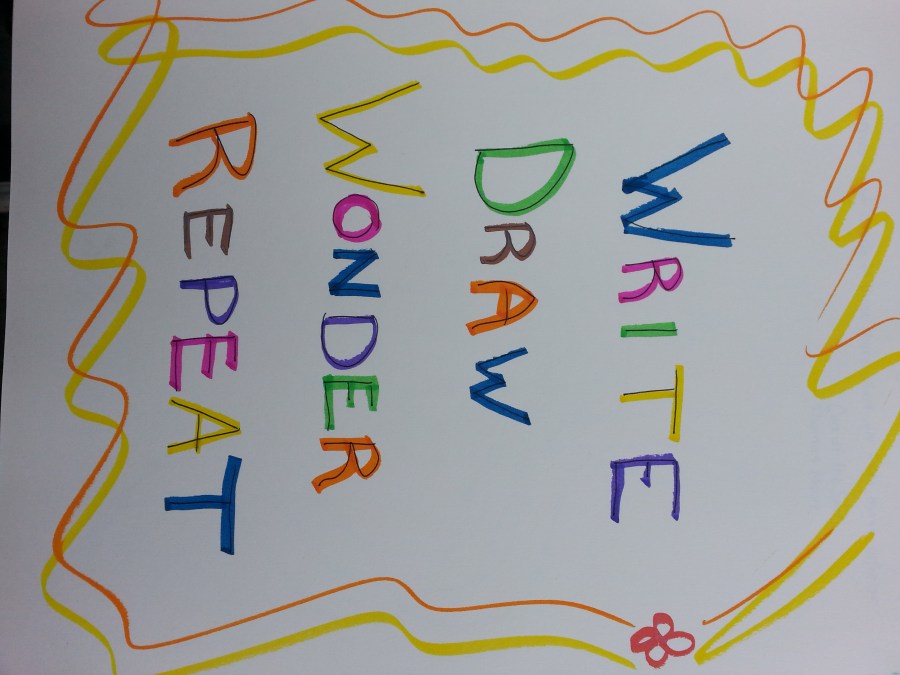 WRITE
DRAW
WONDER
REPEAT